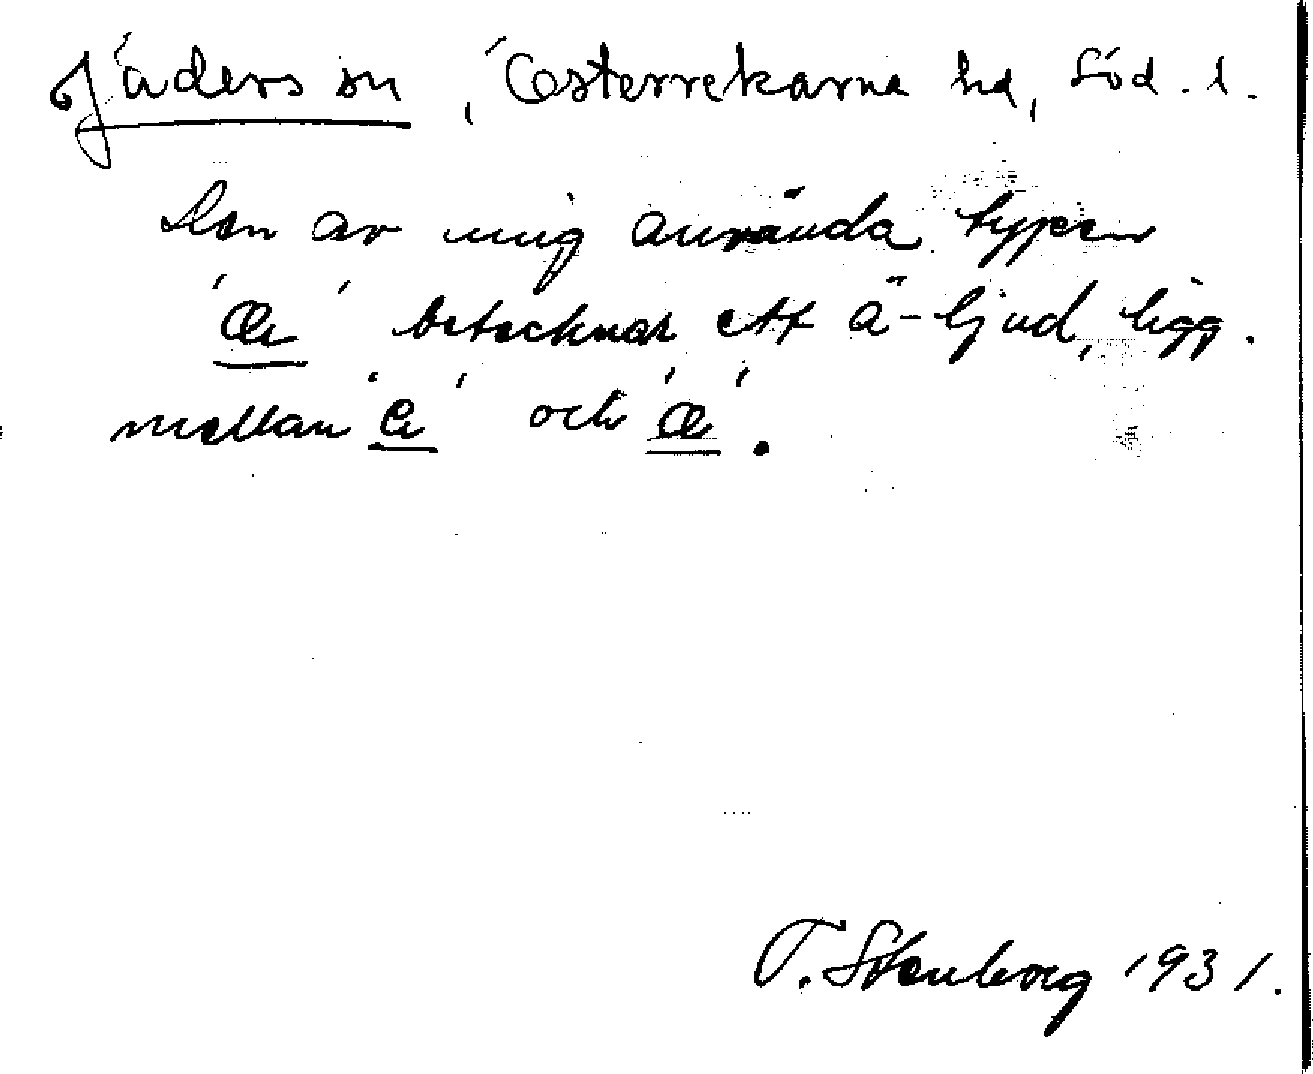 Jäders sn, Österrekarne hd, Söd. l.
Den av mig använda typen
'æ' betecknar ett ä-ljud, ligg.
mellan 'e' och 'æ'.
T. Stenborg 1931.